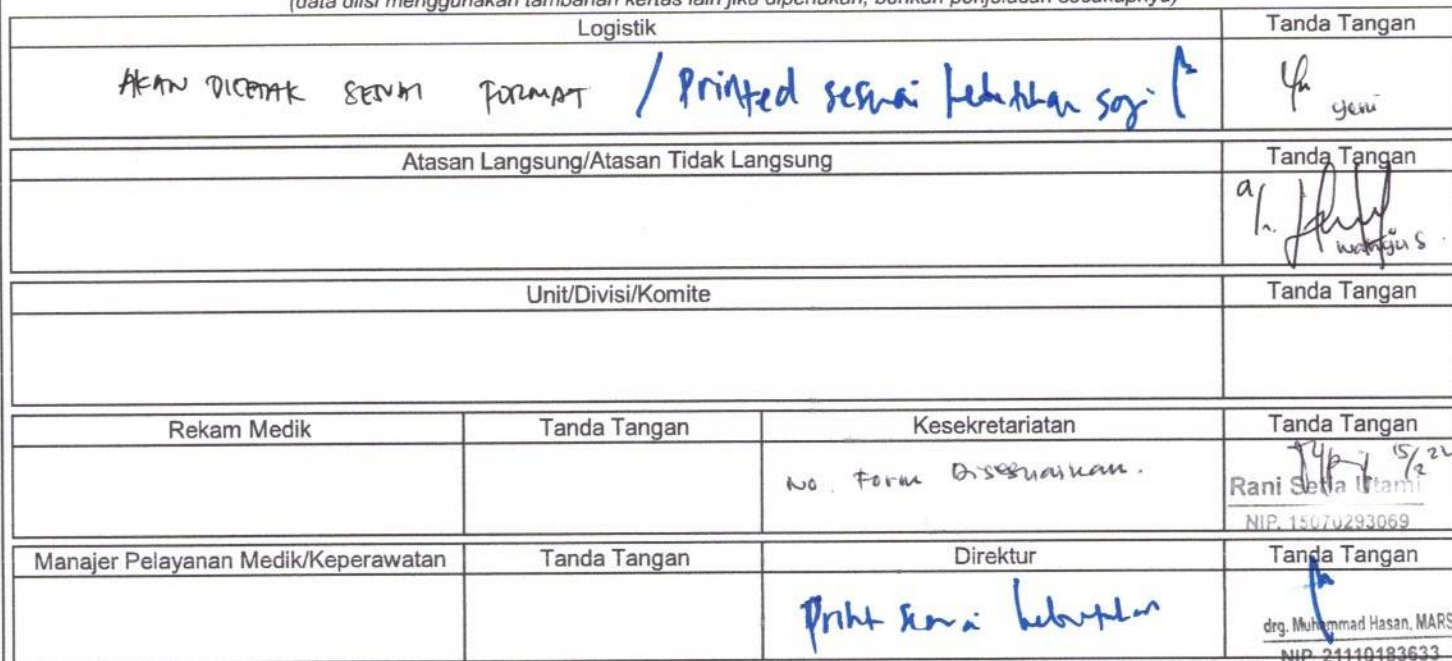 (data diisi menggunakan tambahan kertas lain jika diperlukan, berikan penjelasan secukupnya)
Logistik Tanda Tangan
AKAN DICETAK SESUAI FORMAT / Printed sesuai kebutuhan
yeni
Atasan Langsung/Atasan Tidak Langsung Tanda Tangan
Unit/Divisi/Komite Tanda Tangan
Rekam Medik Tanda Tangan Kesekretariatan Tanda Tangan
No. Form Disesuaikan. 15/2 22
Rani Setia Utami
NIP. 15070293069
Manajer Pelayanan Medik/Keperawatan Tanda Tangan Direktur Tanda Tangan
Print sesuai kebutuhan
drg. Muhammad Hasan, MARS
NIP. 21110183633